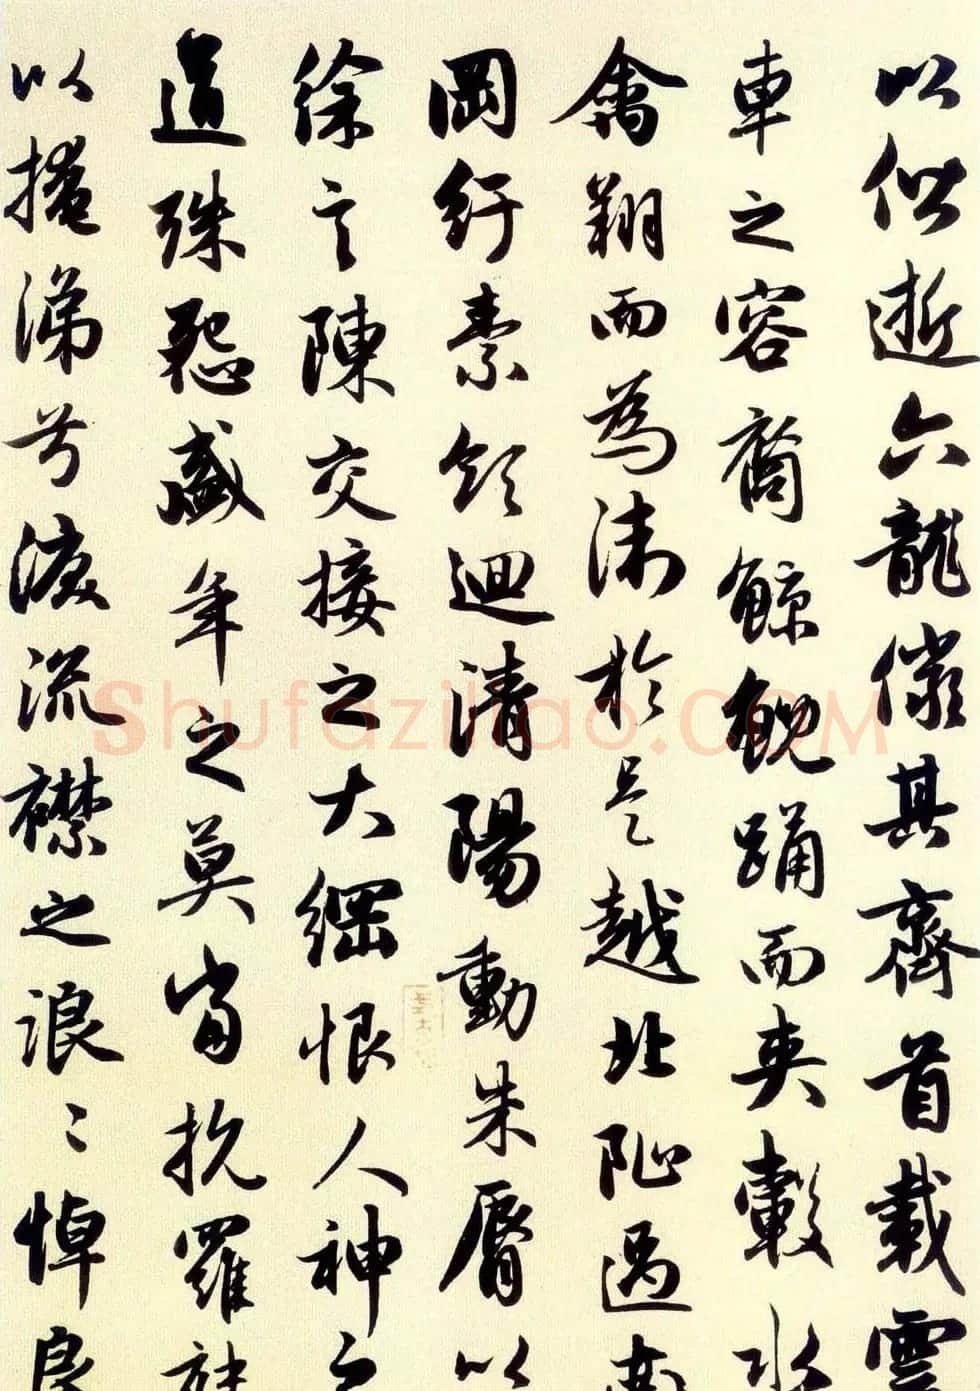 以偕逝六龍儼其齊首載雲
車之容裔鯨鯢踊而夾轂水
禽翔而為衛於是越北沚過南
岡紆素領迴清陽動朱脣以
徐言陳交接之大綱恨人神之
道殊怨盛年之莫當抗羅袂
以掩涕兮淚流襟之浪〻悼良
Shufaziliao.COM